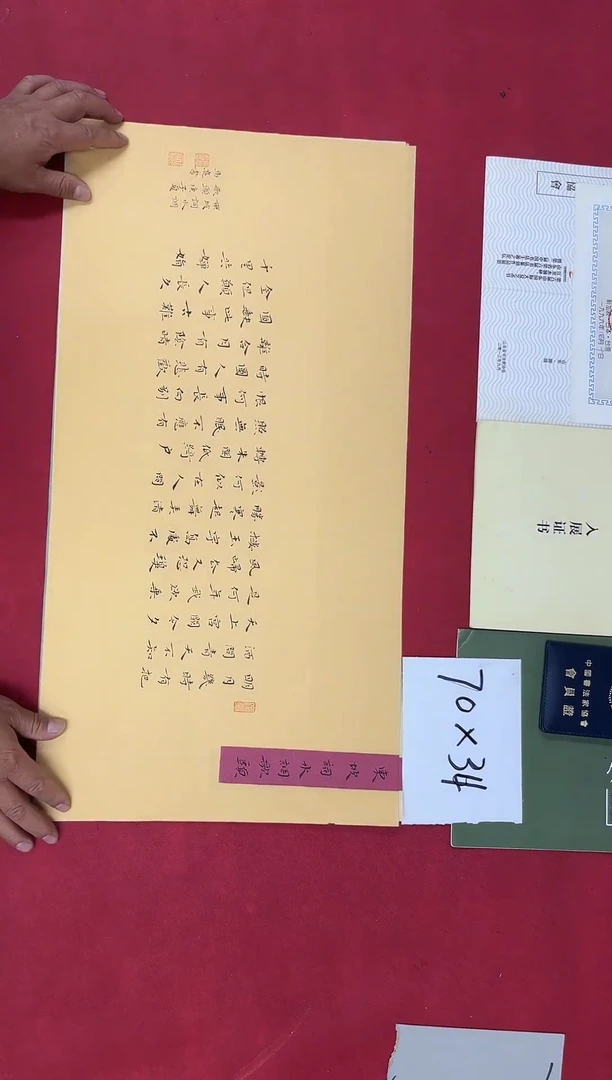 東坡詞水調歌頭
明月幾時有把
酒問青天不知
天上宮闕今夕
是何年我欲乘
風歸去又恐瓊
樓玉宇高處不
勝寒起舞弄清
影何似在人間
轉朱閣低綺戶
照無眠不應有
恨何事長向別
時圓人有悲歡
離合月有陰晴
圓缺此事古難
全但願人長久
千里共嬋娟
70×34
協會
入展证书
中國書法家協會
會員證